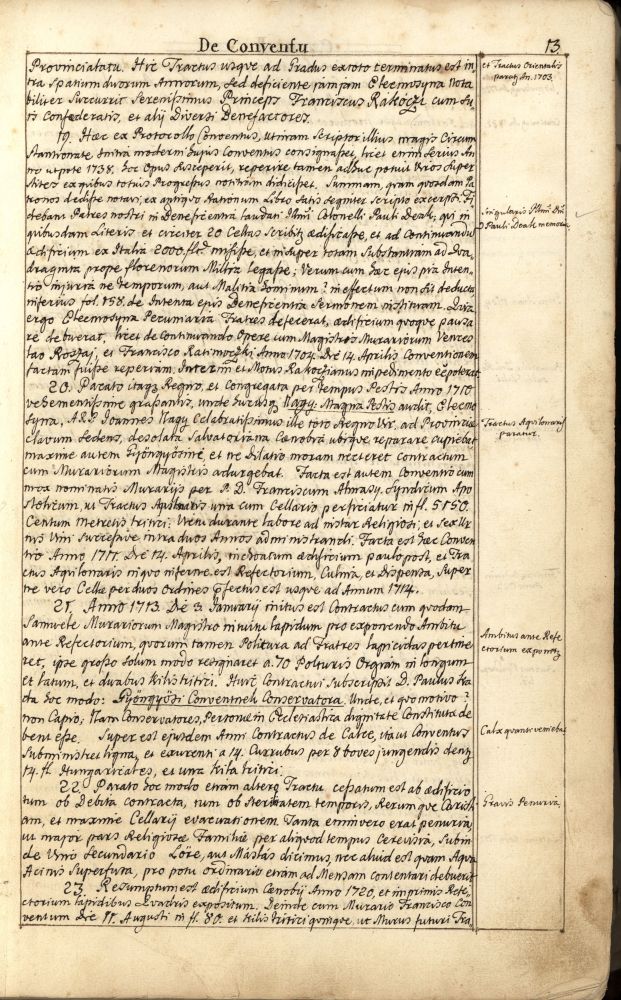 De Conventu
13.
Provinciatatu. Hic Tractus usque ad Gradus ex toto terminatus est in,
tra Spatium duorum Annorum, sed deficiente jamjam Eleemosyna Nota
biliter Succurrit Serenissimus Princeps Franciscus Rakoczi cum Su,
is Confœderatis, et alij Diversi Benefactores.
et Tractus Orientalis
paratg An. 1703.
19. Hæc ex Protocollo Conventus, utinam Scriptor illius magis Circum
stantionate initia moderni hujus Conventus consignasset, licet enim Serius An
no utpote 1738. hoc Opus Susceperit, reperire tamen adhuc potuit Viros Super
stites ex quibus totius Progressus notitiam didicisset. Summam, quam quosdam Pa
tronos dedisse notavi, ex antiquo Rationum Libro Satis Segniter Scripto excerpsi. Vi
debant Patres nostri in Beneficentia laudari Illmi Colonelli Pauli Deak, qui in
quibusdam Literis et circiter 20 Cellas Scribit ædificasse, et ad Continuandum
Ædificium ex Italia 2000. flr. misisse, et insuper totam Substantiam ad Qua,
draginta prope florenorum Millia Legasse; Verum cum hæc ejus pia Inten,
tio injuria ne temporum, aut Malitia hominum? in effectum non sit deducta
inferius fol. 158. de Intenta ejus Beneficentia Sermonem instituam. Quia
ergo Eleemosyna Pecuniaria Fratres defecerat, ædificium quoque pausa
re debuerat, licet de Continuando Opere cum Magistris Murariorum Vences
lao Rosztaj, et Francisco Ratimoczki Anno 1704. Die 14 Aprilis Conventionem
factam fuisse reperiam. Interim et Motus Rakoczianus impedimento esse poterat.
Singularis Illmi Dni
D. Pauli Deak memoria
20. Pacato itaq Regno, et Congregata per tempus Pestis Anno 1710
vehementissime grassantis, unde hucdum Nagy. Magna Pestis audit, Eleemo
syna, A.R.P. Joannes Nagy Celebratissimus ille toto Regno Vir, ad Provinciæ
clavum Sedens, desolata Salvatoriana Cœnobia ubique reparare cupiebat
maxime autem Gyöngyösine, et ne dilatio moram necteret contractum
cum Murariorum Magistris adurgebat. Facta est autem Conventio cum
mox nominatis Murarijs per P. D. Franciscum Almasy Syndicum Apo
stolicum, ut Tractus Aquilonaris una cum Cellaris perficiatur in fl. 5150.
Centum Metretis tritici: Victu durante labore ad instar Religiosi, et Sex Ur
nis Vini Successive intra duos Annos administrandi. Facta est hæc Conven
tio Anno 1711. Die 14. Aprilis, inchoatum ædificium paulo post, et Tra
ctus Aquilonaris in quo inferne est Refectorium, Culina, et Dispensa, Super
ne vero Cellæ per duos Ordines perfectus est usque ad Annum 1714.
Tractus Aquilonaris
paratur.
21. Anno 1713. Die 3 Januarij initus est Contractus cum quodam
Samuele Murariorum Magistro intuitu lapidum pro exponendo Ambitu
ante Refectorium, quorum tamen Politura ad Fratres lapicidas pertine
ret, ipse grosso Solum modo resignaret a 70 Polturis Orgiam in longum
et latum, et duabus kilis tritici. Huic Contractui Subscripsit D. Paulus Fra
ter hoc modo: Gyöngyösi Conventnek Conservatora. Unde, et quo motivo?
non Capio; Nam Conservatores, Personæ in Ecclesiastica dignitate Constitutæ de
bent esse. Super est ejusdem Anni Contractus de Calce, ita ut Conventus
Subministret ligna, et exurenti a 14. Curribus per 8 boves jungendis dent
14. fl. Hungaricales, et una kila tritici.
Ambitus ante Refe
ctorium exponitur
Calx quanti veniebat
22. Parato hoc modo etiam altero Tractu cessatum est ab ædificio
tum ob Debita contracta, tum ob Sterilitatem temporis, Rerumque Carist
iam, et maxime Cellarij evacuationem. Tanta enimvero erat penuria,
ut major pars Religiosæ Familiæ per aliquod tempus Cerevisia, Subin
de Vino Secundario Löre, aut Máslás dicimus, nec aliud est quam Aqua
Acinis Superfusa, pro potu ordinario etiam ad Mensam contentari debuerit
Gravis Penuria.
23. Resumptum est ædificium Cœnobij Anno 1720, et imprimis Refe,
ctorium lapidibus Quadris expositum. Deinde cum Murario Francisco Con
ventum Die 11. Augusti in fl. 80. et kilis tritici quinque, ut Murus futuri Tra,